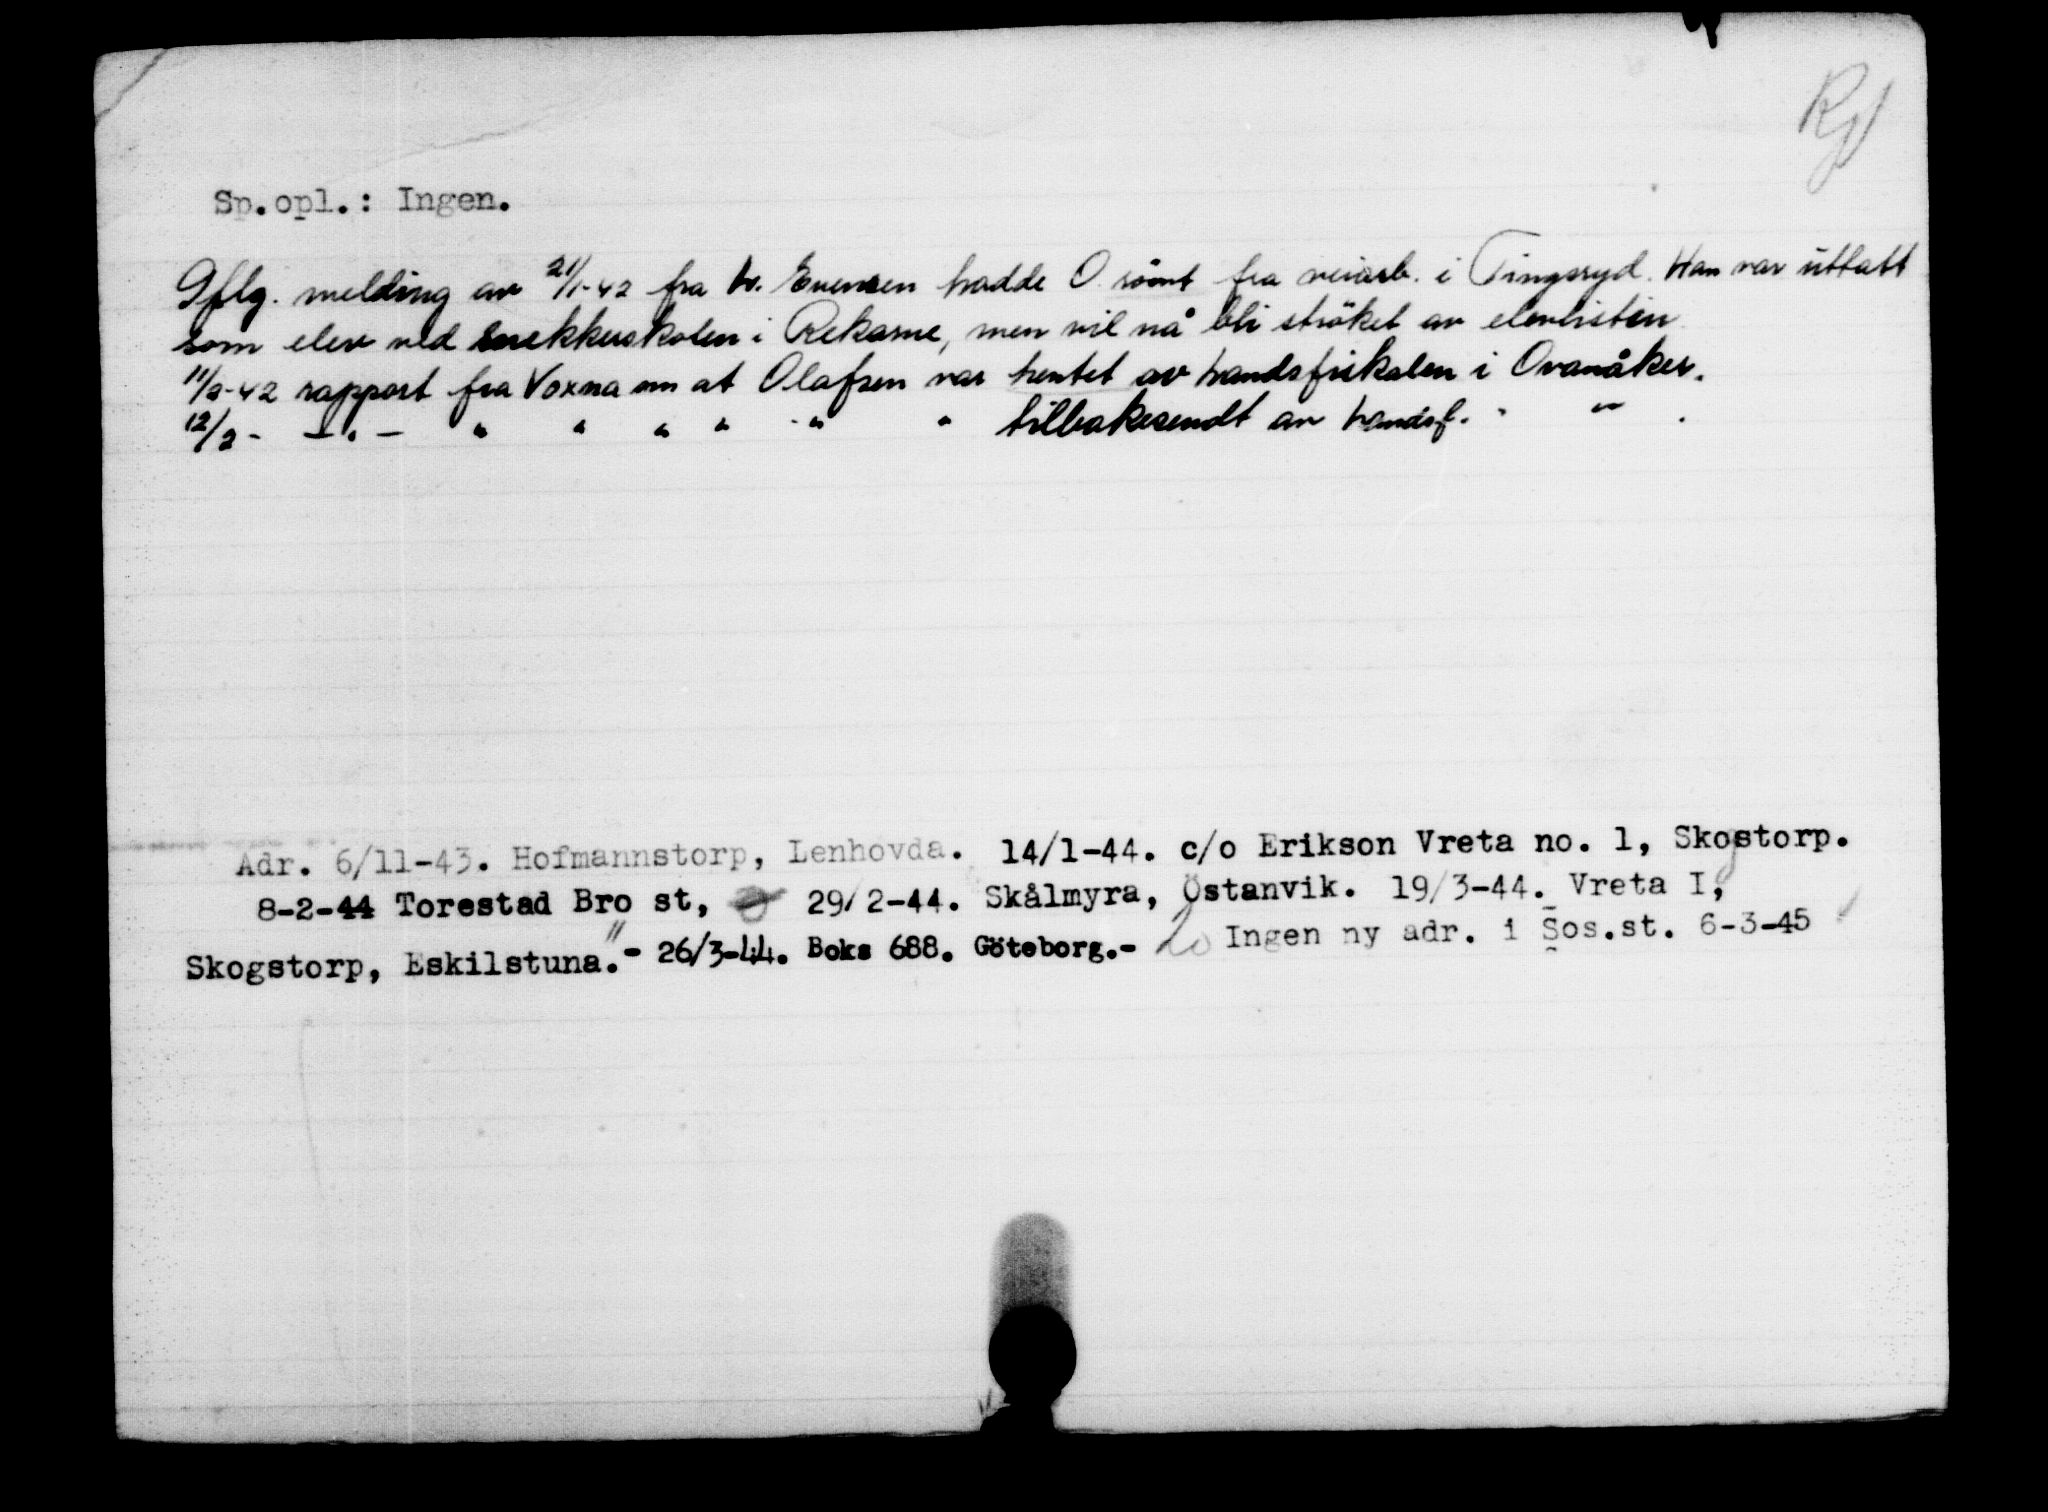 Sp.opl.: Ingen.
Iflg. melding av 21/1-42 fra L. Evensen hadde O. römt fra veiarb. i Tingsryd. Han var üttatt
som elev ved snekkerskolen i Rekarne, men vil nå bli ströket av elevlisten
11/2-42 rapport fra Voxna om at Olafsen var hentet av Landsfiskalen i Ovanåker.
12/2- - " - " " " " " " tilbakesendt av Landsf. " " .
Adr. 6/11-43. Hofmannstorp, Lenhovda. 14/1-44. c/o Erikson Vreta no. 1, Skogstorp.
8-2-44 Torestad Bro st, 29/2-44. Skålmyra, Östanvik. 19/3-44. Vreta I,
Skogstorp, Eskilstuna."- 26/3-44. Boks 688. Göteborg.- Ingen ny adr. i Sos.st. 6-3-45